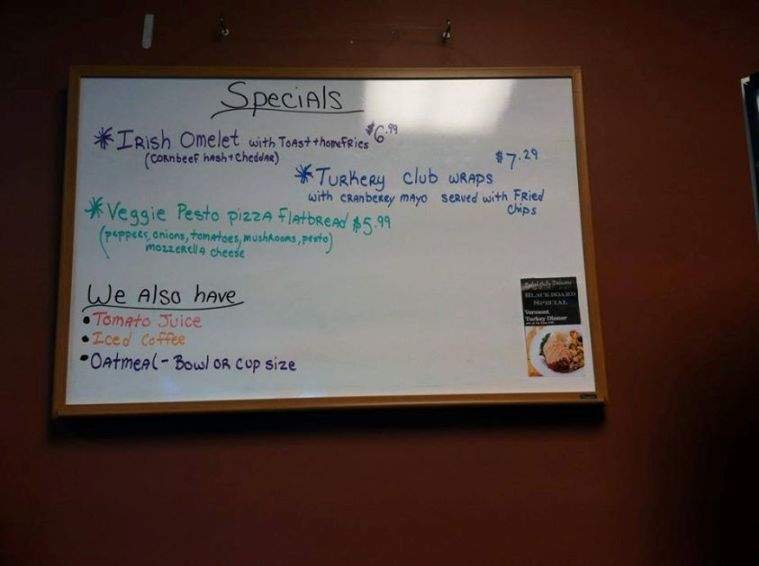 Specials
* Irish Omelet with Toast + homefries $6.99
(cornbeef hash + cheddar)
* Turkery club wraps $7.29
with cranberry mayo served with Fried
Chips
* Veggie Pesto pizza Flatbread $5.99
(peppers, onions, tomatoes, mushrooms, pesto)
mozzerella cheese
We Also have
• Tomato Juice
• Iced Coffee
• Oatmeal - Bowl or cup size
BLACKBOARD
SPECIAL
Vermont
Turkey Dinner